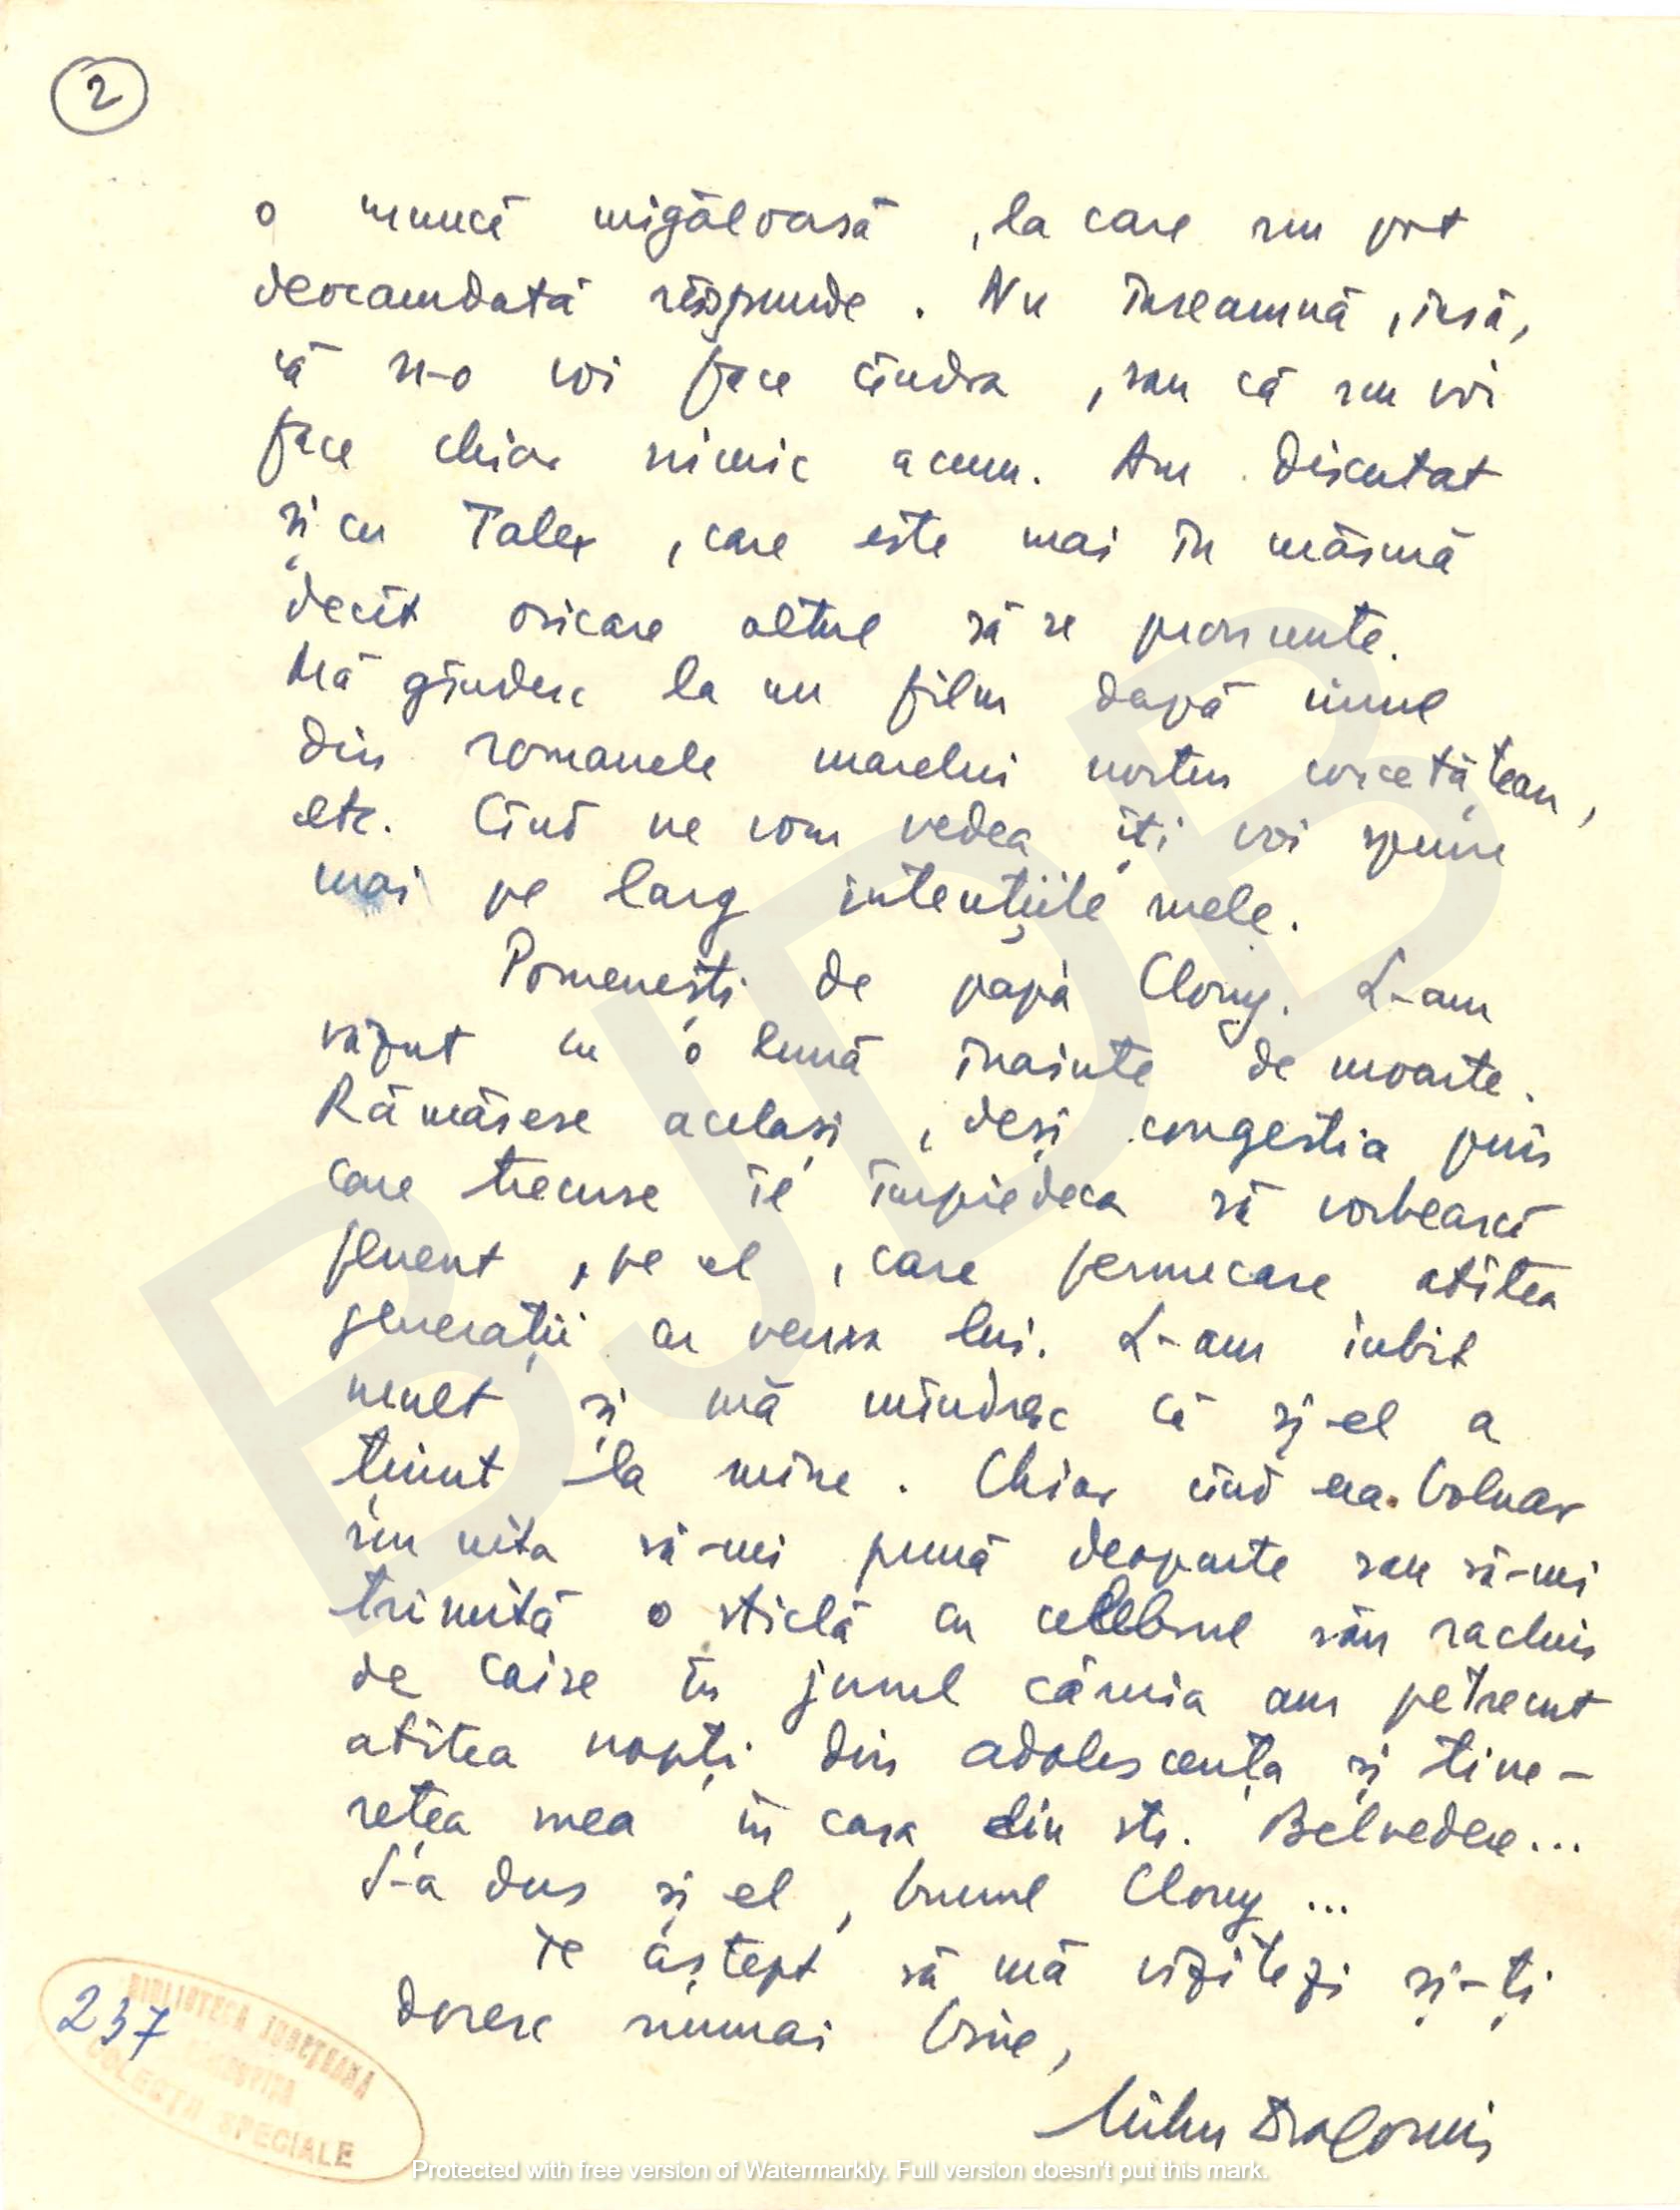 2
o muncă migăloasă, la care nu pot
deocamdată răspunde. Nu înseamnă, însă,
că n-o voi face cîndva, sau că nu voi
face chiar nimic acum. Am discutat
și cu Talex, care este mai în măsură
decît oricare altul să se pronunțe.
Mă gîndesc la un film după unul
din romanele marelui nostru concetățean,
etc. Cînd ne vom vedea îți voi spune
mai pe larg intențiile mele.
Pomenești de papà Clony. L-am
văzut cu o lună înainte de moarte.
Rămăsese același, deși congestia prin
care trecuse îl împiedeca să vorbească
fluent, pe el, care fermecase atîtea
generații cu verva lui. L-am iubit
mult și mă mîndresc că și-el a
ținut la mine. Chiar cînd era bolnav
nu uita să-mi pună deoparte sau să-mi
trimită o sticlă cu celebrul său rachiu
de caise în jurul căruia am petrecut
atîtea nopți din adolescența și tine-
rețea mea în casa din str. Belvedere...
S-a dus și el, bunul Clony...
Te aștept să mă vizitezi și-ți
doresc numai bine,
Mihu Dragomir
237
BIBLIOTECA JUDEȚEANĂ
COLECȚII SPECIALE
BJDB
Protected with free version of Watermarkly. Full version doesn't put this mark.